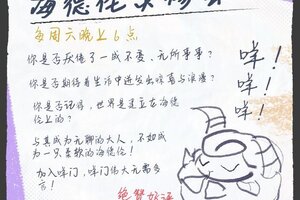 每周六晚上6点
你是否厌倦了一成不变、无所事事?
你是否期待着生活中迸发出惊喜与浪漫?
你是否认为,世界是建立在海德伦上的?
与其成为无聊的大人,不如成为一只柔软的海德伦!
加入咩门,咩门伟大无需多言!
咩!
咩!
咩!
绝赞好评